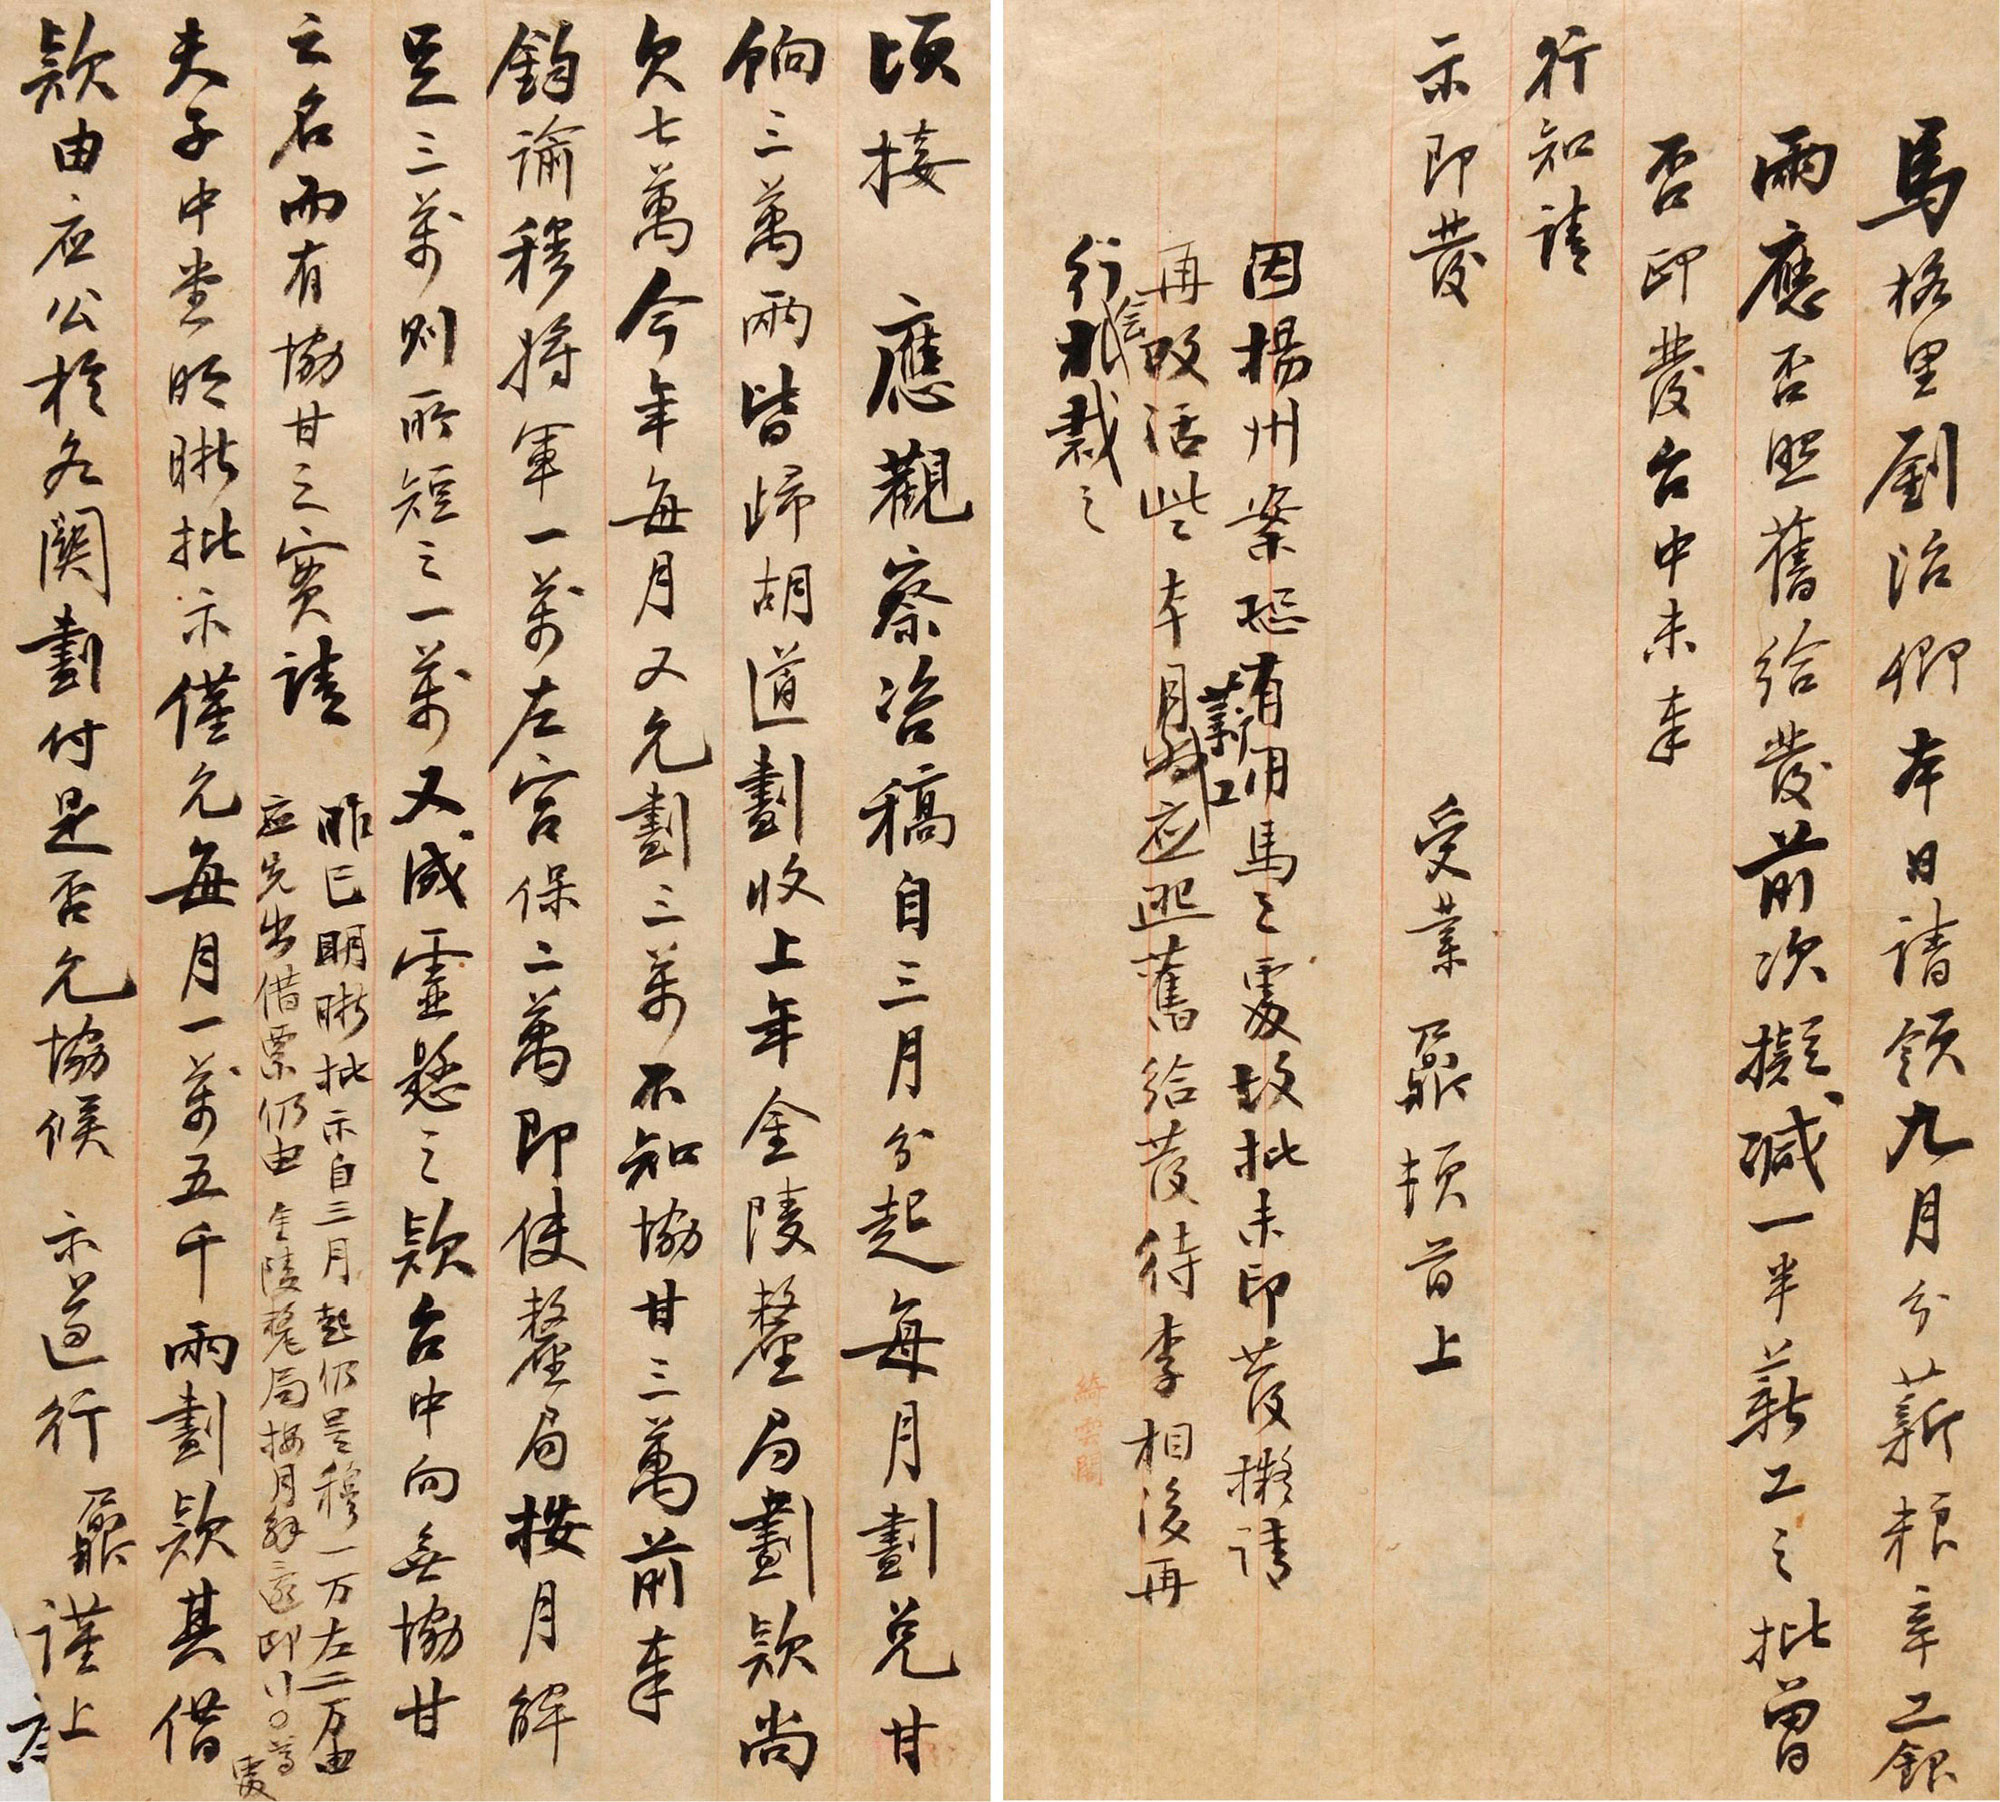 馬格里劉治卿本日請領九月分薪粮辛工銀
兩應否照舊給發前次擬減一半薪工之批曾
否印發台中未奉
行知請
示即發
受業鼐頓首上
因揚州案恐有用馬之處故批未印發擬請
薪工
再改活些本月應照舊給發待李相後再
行裁之
頃接 應觀察冶稿自三月分起每月劃兌甘
餉三萬兩皆歸胡道劃收上年金陵釐局劃款尚
欠七萬今年每月又允劃三萬不知協甘三萬前奉
鈞諭穆將軍一萬左宮保二萬即使釐局按月解
足三萬則所短之一萬又成靈懸之款台中向無協甘
之名而有協甘之實請
昨已明晰批示自三月起仍是穆一万左二万由
应先出借票仍由金陵釐局按月解還即
夫子中堂明晰批示僅允每月一萬五千兩劃款其借
款由应公於各關劃付是否允協候 示遵行 鼐謹上